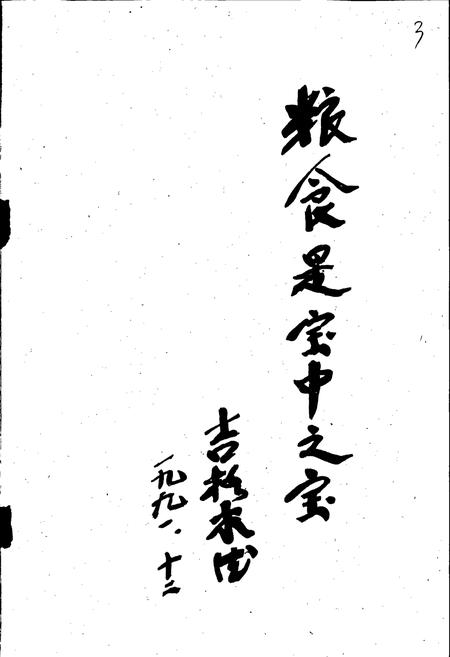 3
粮食是宝中之宝
一九九一、十二